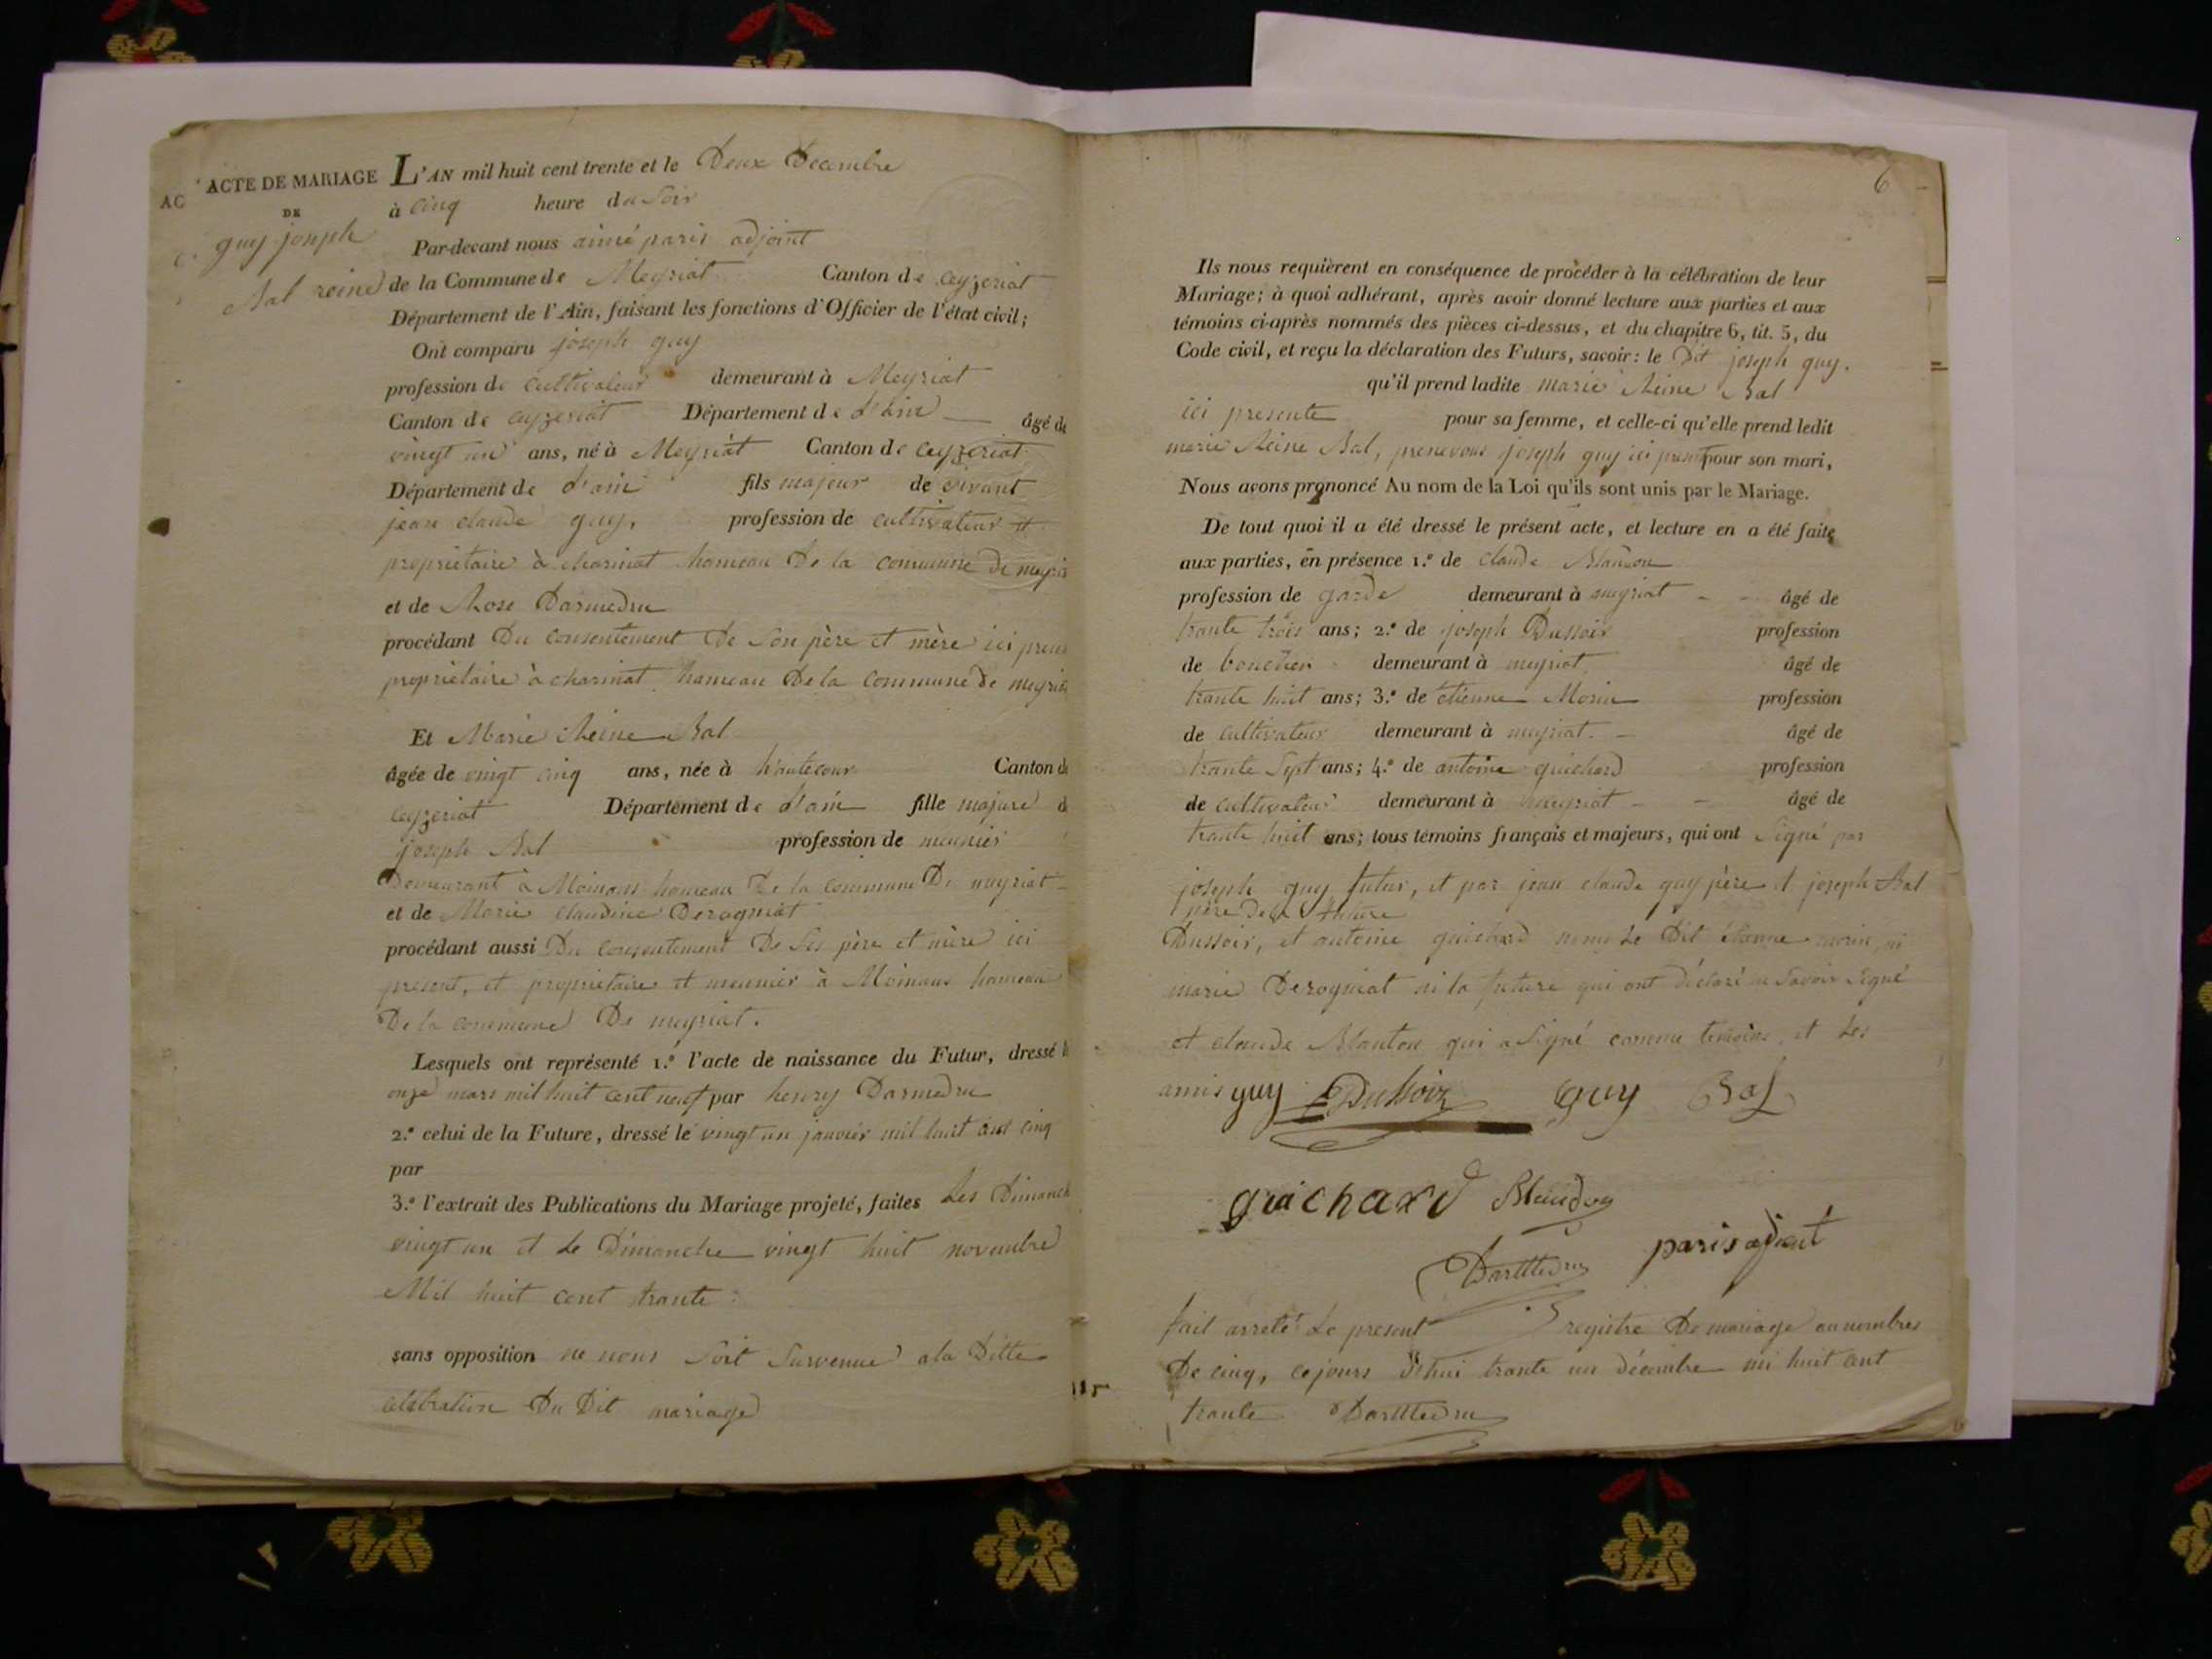 ACTE DE MARIAGE
AC
DE
guy joseph
Bal reine
L'AN mil huit cent trente et le Deux Decembre
à cinq heure du Soir
Par-devant nous aimé paris adjoint
de la Commune de Meyriat Canton de ceyzeriat
Département de l'Ain, faisant les fonctions d'Officier de l'état civil;
Ont comparu joseph guy
profession de cultivateur demeurant à Meyriat
Canton de ceyzeriat Département de L'ain âgé de
vingt un ans, né à Meyriat Canton de ceyzeriat
Département de L'ain fils majeur de vivant
jean claude guy, profession de cultivateur et
proprietaire à charinat hameau De la commune De meyria
et de Rose Darmedru
procédant Du consentement De Son père et mère ici
proprietaire à charinat hameau De la commune De meyria
Et Marie Reine Bal
âgée de vingt cinq ans, née à hautecour Canton de
ceyzeriat Département de L'ain fille majure d
joseph Bal profession de meunier
Demeurant à Moinans hameau De la commune De meyriat
et de Marie claudine Derogniat
procédant aussi Du consentement De Ses père et mère ici
present, et proprietaire et meunier à Moinans hameau
De la commune De meyriat.
Lesquels ont représenté 1.º l'acte de naissance du Futur, dressé l
onze mars mil huit cent neuf par henry Darmedru
2.º celui de la Future, dressé le vingt un janvier mil huit cent cinq
par
3.º l'extrait des Publications du Mariage projeté, faites Les Dimanch
vingt un et Le Dimanche vingt huit novembre
Mil huit cent trante
sans opposition ne nous Soit Survenue a la Ditte
celebration Du Dit mariage
6
Ils nous requièrent en conséquence de procéder à la célébration de leur
Mariage; à quoi adhérant, après avoir donné lecture aux parties et aux
témoins ci-après nommés des pièces ci-dessus, et du chapitre 6, tit. 5, du
Code civil, et reçu la déclaration des Futurs, savoir: le Dit joseph guy.
qu'il prend ladite marie Reine Bal
ici presente pour sa femme, et celle-ci qu'elle prend ledit
marie Reine Bal, prenevous joseph guy ici present pour son mari,
Nous avons prononcé Au nom de la Loi qu'ils sont unis par le Mariage.
De tout quoi il a été dressé le présent acte, et lecture en a été faite
aux parties, en présence 1.º de claude Blandon
profession de garde demeurant à meyriat âgé de
trante trois ans; 2.º de joseph Dussoir profession
de boucher demeurant à meyriat âgé de
trante huit ans; 3.º de etienne Morin profession
de cultivateur demeurant à meyriat. âgé de
trante Sept ans; 4.º de antoine guichard profession
de cultivateur demeurant à meyriat âgé de
trante huit ans; tous témoins français et majeurs, qui ont Signé par
joseph guy futur, et par jean claude guy père et joseph Bal
père De la future
Dussoir, et antoine guichard Le Dit étienne morin, ni
marie Derogniat ni la future qui ont déclaré ne Savoir Signé
et claude Blanton qui a Signé comme temoins, et Les
amis guy Dussoir guy Bal
guichard Blandon
Darmedru paris adjoint
fait arreté Le present registre De mariage au nombres
De cinq, cejours D'hui trante un décembre mi huit cent
trante Darmedru